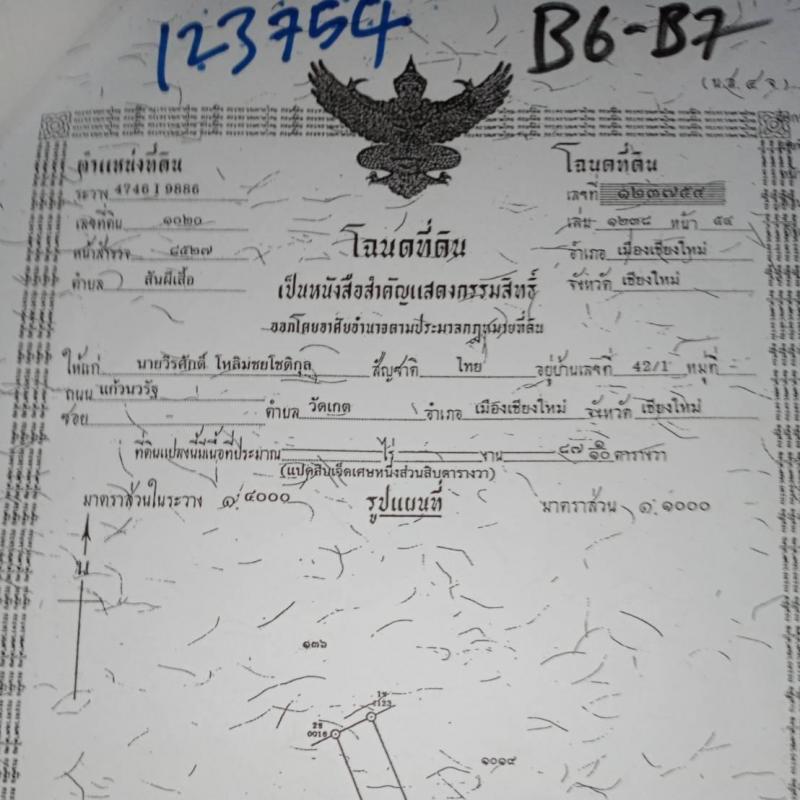 123754
B6-B7
(น.ส. ๔ จ.)
ตำแหน่งที่ดิน
ระวาง 4746 I 9886
เลขที่ดิน ๑๐๒๐
หน้าสำรวจ ๘๕๒๗
ตำบล สันผีเสื้อ
โฉนดที่ดิน
เลขที่ ๑๒๓๗๕๔
เล่ม ๑๒๓๘ หน้า ๕๔
อำเภอ เมืองเชียงใหม่
จังหวัด เชียงใหม่
โฉนดที่ดิน
เป็นหนังสือสำคัญแสดงกรรมสิทธิ์
ออกโดยอาศัยอำนาจตามประมวลกฎหมายที่ดิน
ให้แก่ นายวิรศักดิ์ โหลิมชยโชติกุล สัญชาติ ไทย อยู่บ้านเลขที่ 42/1 หมู่ที่ -
ถนน แก้วนวรัฐ
ซอย - ตำบล วัดเกต อำเภอ เมืองเชียงใหม่ จังหวัด เชียงใหม่
ที่ดินแปลงนี้มีเนื้อที่ประมาณ ไร่ งาน ๘๗ ๑/๑๐ ตารางวา
(แปดสิบเจ็ดเศษหนึ่งส่วนสิบตารางวา)
มาตราส่วนในระวาง ๑:๔๐๐๐ รูปแผนที่ มาตราส่วน ๑:๑๐๐๐
น
๑๓๖
1ข
4123
2ข
0016
๑๐๑๙